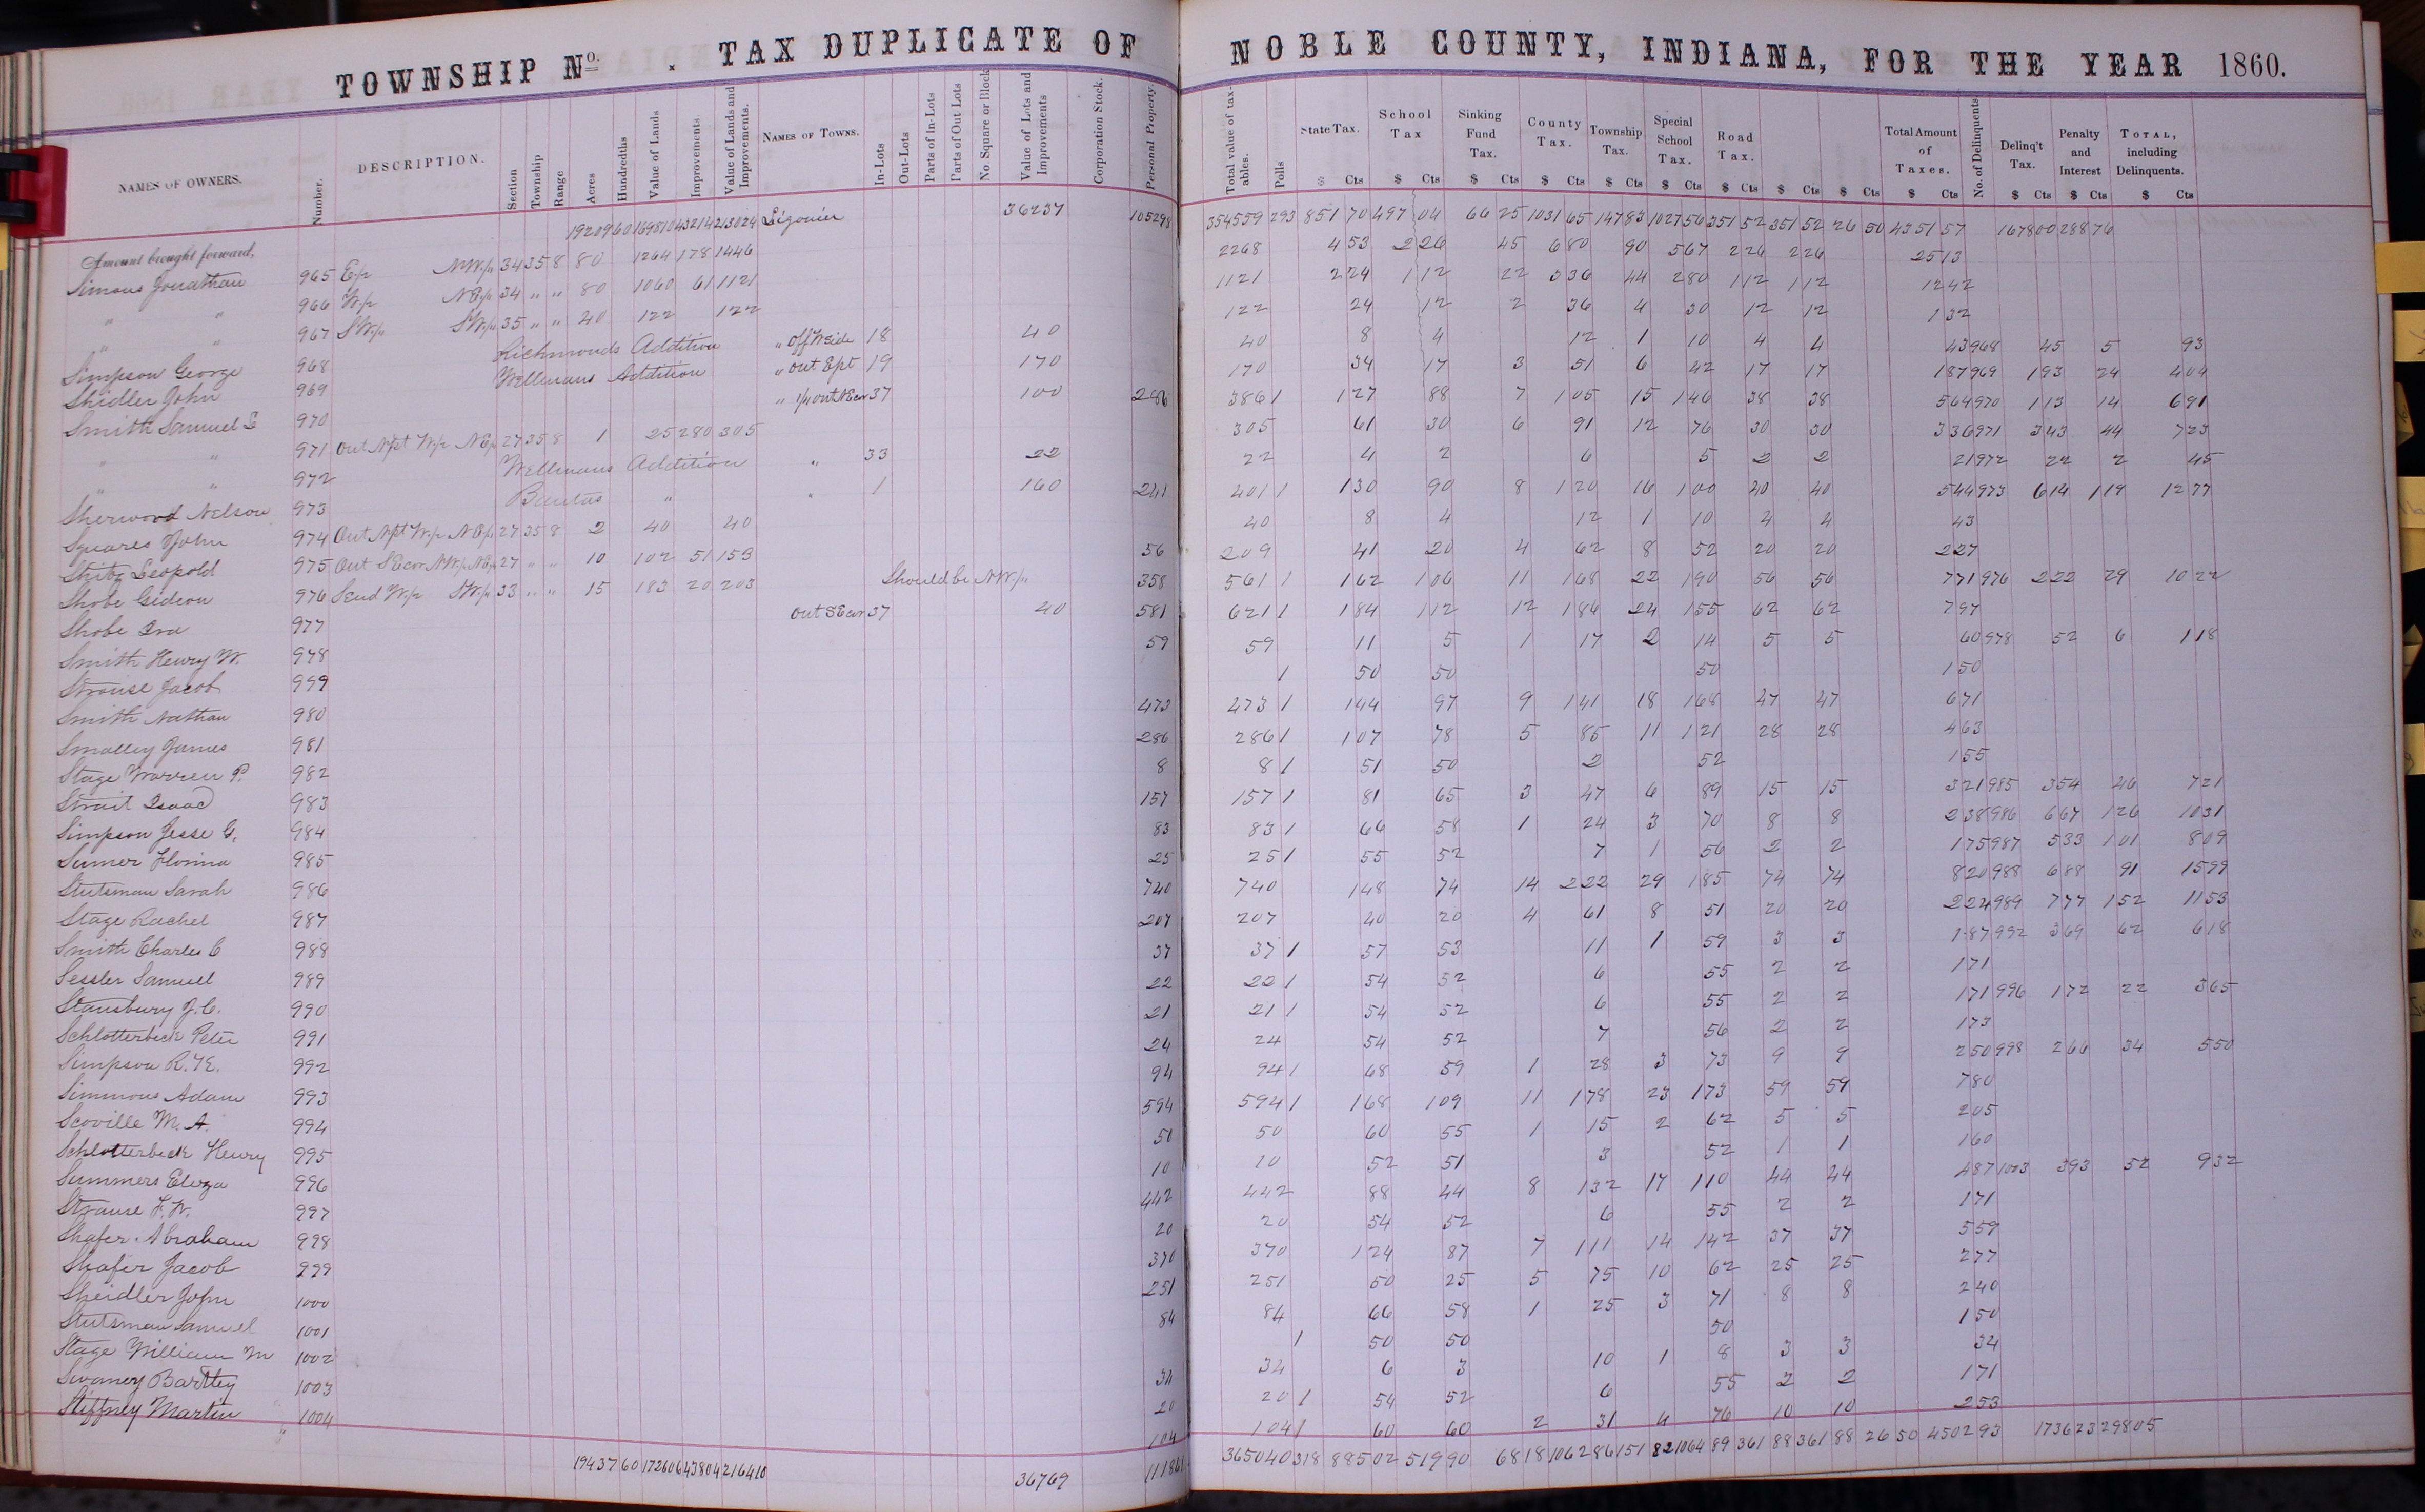 TOWNSHIP No. . TAX DUPLICATE OF NOBLE COUNTY, INDIANA, FOR THE YEAR 1860.
NAMES OF OWNERS. Number. DESCRIPTION. Section Township Range Acres Hundredths Value of Lands Improvements. Value of Lands and Improvements. NAMES OF TOWNS. In-Lots Out-Lots Parts of In-Lots Parts of Out Lots No Square or Block Value of Lots and Improvements Corporation Stock. Personal Property. Total value of tax-ables. Polls State Tax. School Tax Sinking Fund Tax. County Tax. Township Tax. Special School Tax. Road Tax. Total Amount of Taxes. No. of Delinquents Delinq't Tax. Penalty and Interest TOTAL, including Delinquents.
$ Cts $ Cts $ Cts $ Cts $ Cts $ Cts $ Cts $ Cts $ Cts $ Cts $ Cts $ Cts $ Cts
Amount brought forward, 19209 60 169810 43214 213024 Ligonier 36237 105298 354559 293 851 70 497 04 66 25 1031 65 147 83 1027 56 351 52 351 52 26 50 4351 57 1678 00 288 76
Simons Jonathan 965 E½ NW¼ 34 35 8 80 1264 178 1446 2268 4 53 2 26 45 6 80 90 5 67 2 26 2 26 25 13
" " 966 W½ NE¼ 34 " " 80 1060 61 1121 1121 2 24 1 12 22 3 36 44 2 80 1 12 1 12 12 42
" " 967 SW¼ SW¼ 35 " " 40 122 122 122 24 12 2 36 4 30 12 12 1 32
Simpson George 968 Richmonds Addition " off W side 18 40 40 8 4 12 1 10 4 4 43 968 45 5 93
Shidler John 969 Wellmans Addition " out Ept 19 170 170 34 17 3 51 6 42 17 17 1 87 969 1 93 24 4 04
Smith Samuel E 970 " ¼ out NE cor 37 100 286 386 1 1 27 88 7 1 05 15 1 46 38 38 5 64 970 1 13 14 6 91
" " 971 Out Npt W½ NE¼ 27 35 8 1 25 280 305 305 61 30 6 91 12 76 30 30 3 36 971 3 43 44 7 23
" " 972 Wellmans Addition " 33 22 22 4 2 6 5 2 2 21 972 22 2 45
Sherwood Nelson 973 Bantas " " 1 160 241 401 1 1 30 90 8 1 20 16 1 00 40 40 5 44 973 6 14 1 19 12 77
Squares John 974 Out Npt W½ NE¼ 27 35 8 2 40 40 40 8 4 12 1 10 4 4 43
Leopold 975 Out SE cor NW¼ NE¼ 27 " " 10 102 51 153 56 209 41 20 4 62 8 52 20 20 2 27
Shobe Gideon 976 S end W½ SW¼ 33 " " 15 183 20 203 Should be NW¼ 358 561 1 1 62 1 06 11 1 68 22 1 90 56 56 7 71 976 2 22 29 10 22
Shobe Ira 977 out SE cor 37 40 581 621 1 1 84 1 12 12 1 86 24 1 55 62 62 7 97
Smith Henry W. 978 59 59 11 5 1 17 2 14 5 5 60 978 52 6 1 18
Strouse Jacob 979 1 50 50 50 1 50
Smith Nathan 980 473 473 1 1 44 97 9 1 41 18 1 68 47 47 6 71
Smalley James 981 286 286 1 1 07 78 5 85 11 1 21 28 28 4 63
Stage Warren P. 982 8 8 1 51 50 2 52 1 55
Strait Isaac 983 157 157 1 81 65 3 47 6 89 15 15 3 21 985 3 54 46 7 21
Simpson Jesse G. 984 83 83 1 66 58 1 24 3 70 8 8 2 38 986 6 67 1 26 10 31
Sumer Florina 985 25 25 1 55 52 7 1 56 2 2 1 75 987 5 33 1 01 8 09
Stutsman Sarah 986 740 740 1 48 74 14 2 22 29 1 85 74 74 8 20 988 6 88 91 15 99
Stage Rachel 987 207 207 40 20 4 61 8 51 20 20 2 24 989 7 77 1 52 11 53
Smith Charles C 988 37 37 1 57 53 11 1 59 3 3 1 87 992 3 69 62 6 18
Sessler Samuel 989 22 22 1 54 52 6 55 2 2 1 71
Stansbury J. C. 990 21 21 1 54 52 6 55 2 2 1 71 996 1 72 22 3 65
Schlotterbeck Peter 991 24 24 54 52 7 56 2 2 1 73
Simpson R. 992 94 94 1 68 59 1 28 3 73 9 9 2 50 998 2 66 34 5 50
Simmons Adam 993 594 594 1 1 68 1 09 11 1 78 23 1 73 59 59 7 80
Scoville M. A. 994 50 50 60 55 1 15 2 62 5 5 2 05
Schlotterbeck Henry 995 10 10 52 51 3 52 1 1 1 60
Summers Eloza 996 442 442 88 44 8 1 32 17 1 10 44 44 4 87 1003 3 93 52 9 32
Strause F. W. 997 20 20 54 52 6 55 2 2 1 71
Shafer Abraham 998 370 370 1 24 87 7 1 11 14 1 42 37 37 5 59
Shafer Jacob 999 251 251 50 25 5 75 10 62 25 25 2 77
Sheidler John 1000 84 84 66 58 1 25 3 71 8 8 2 40
Stutsman Samuel 1001 1 50 50 50 1 50
Stage William M 1002 34 34 6 3 10 1 8 3 3 34
Swaney Bartley 1003 20 20 1 54 52 6 55 2 2 1 71
Stiffney Martin 1004 104 104 1 60 60 2 31 4 76 10 10 2 53
19437 60 172606 43804 216410 36769 111861 365040 318 885 02 519 90 68 18 1062 86 151 82 1064 89 361 88 361 88 26 50 4502 93 1736 23 298 05